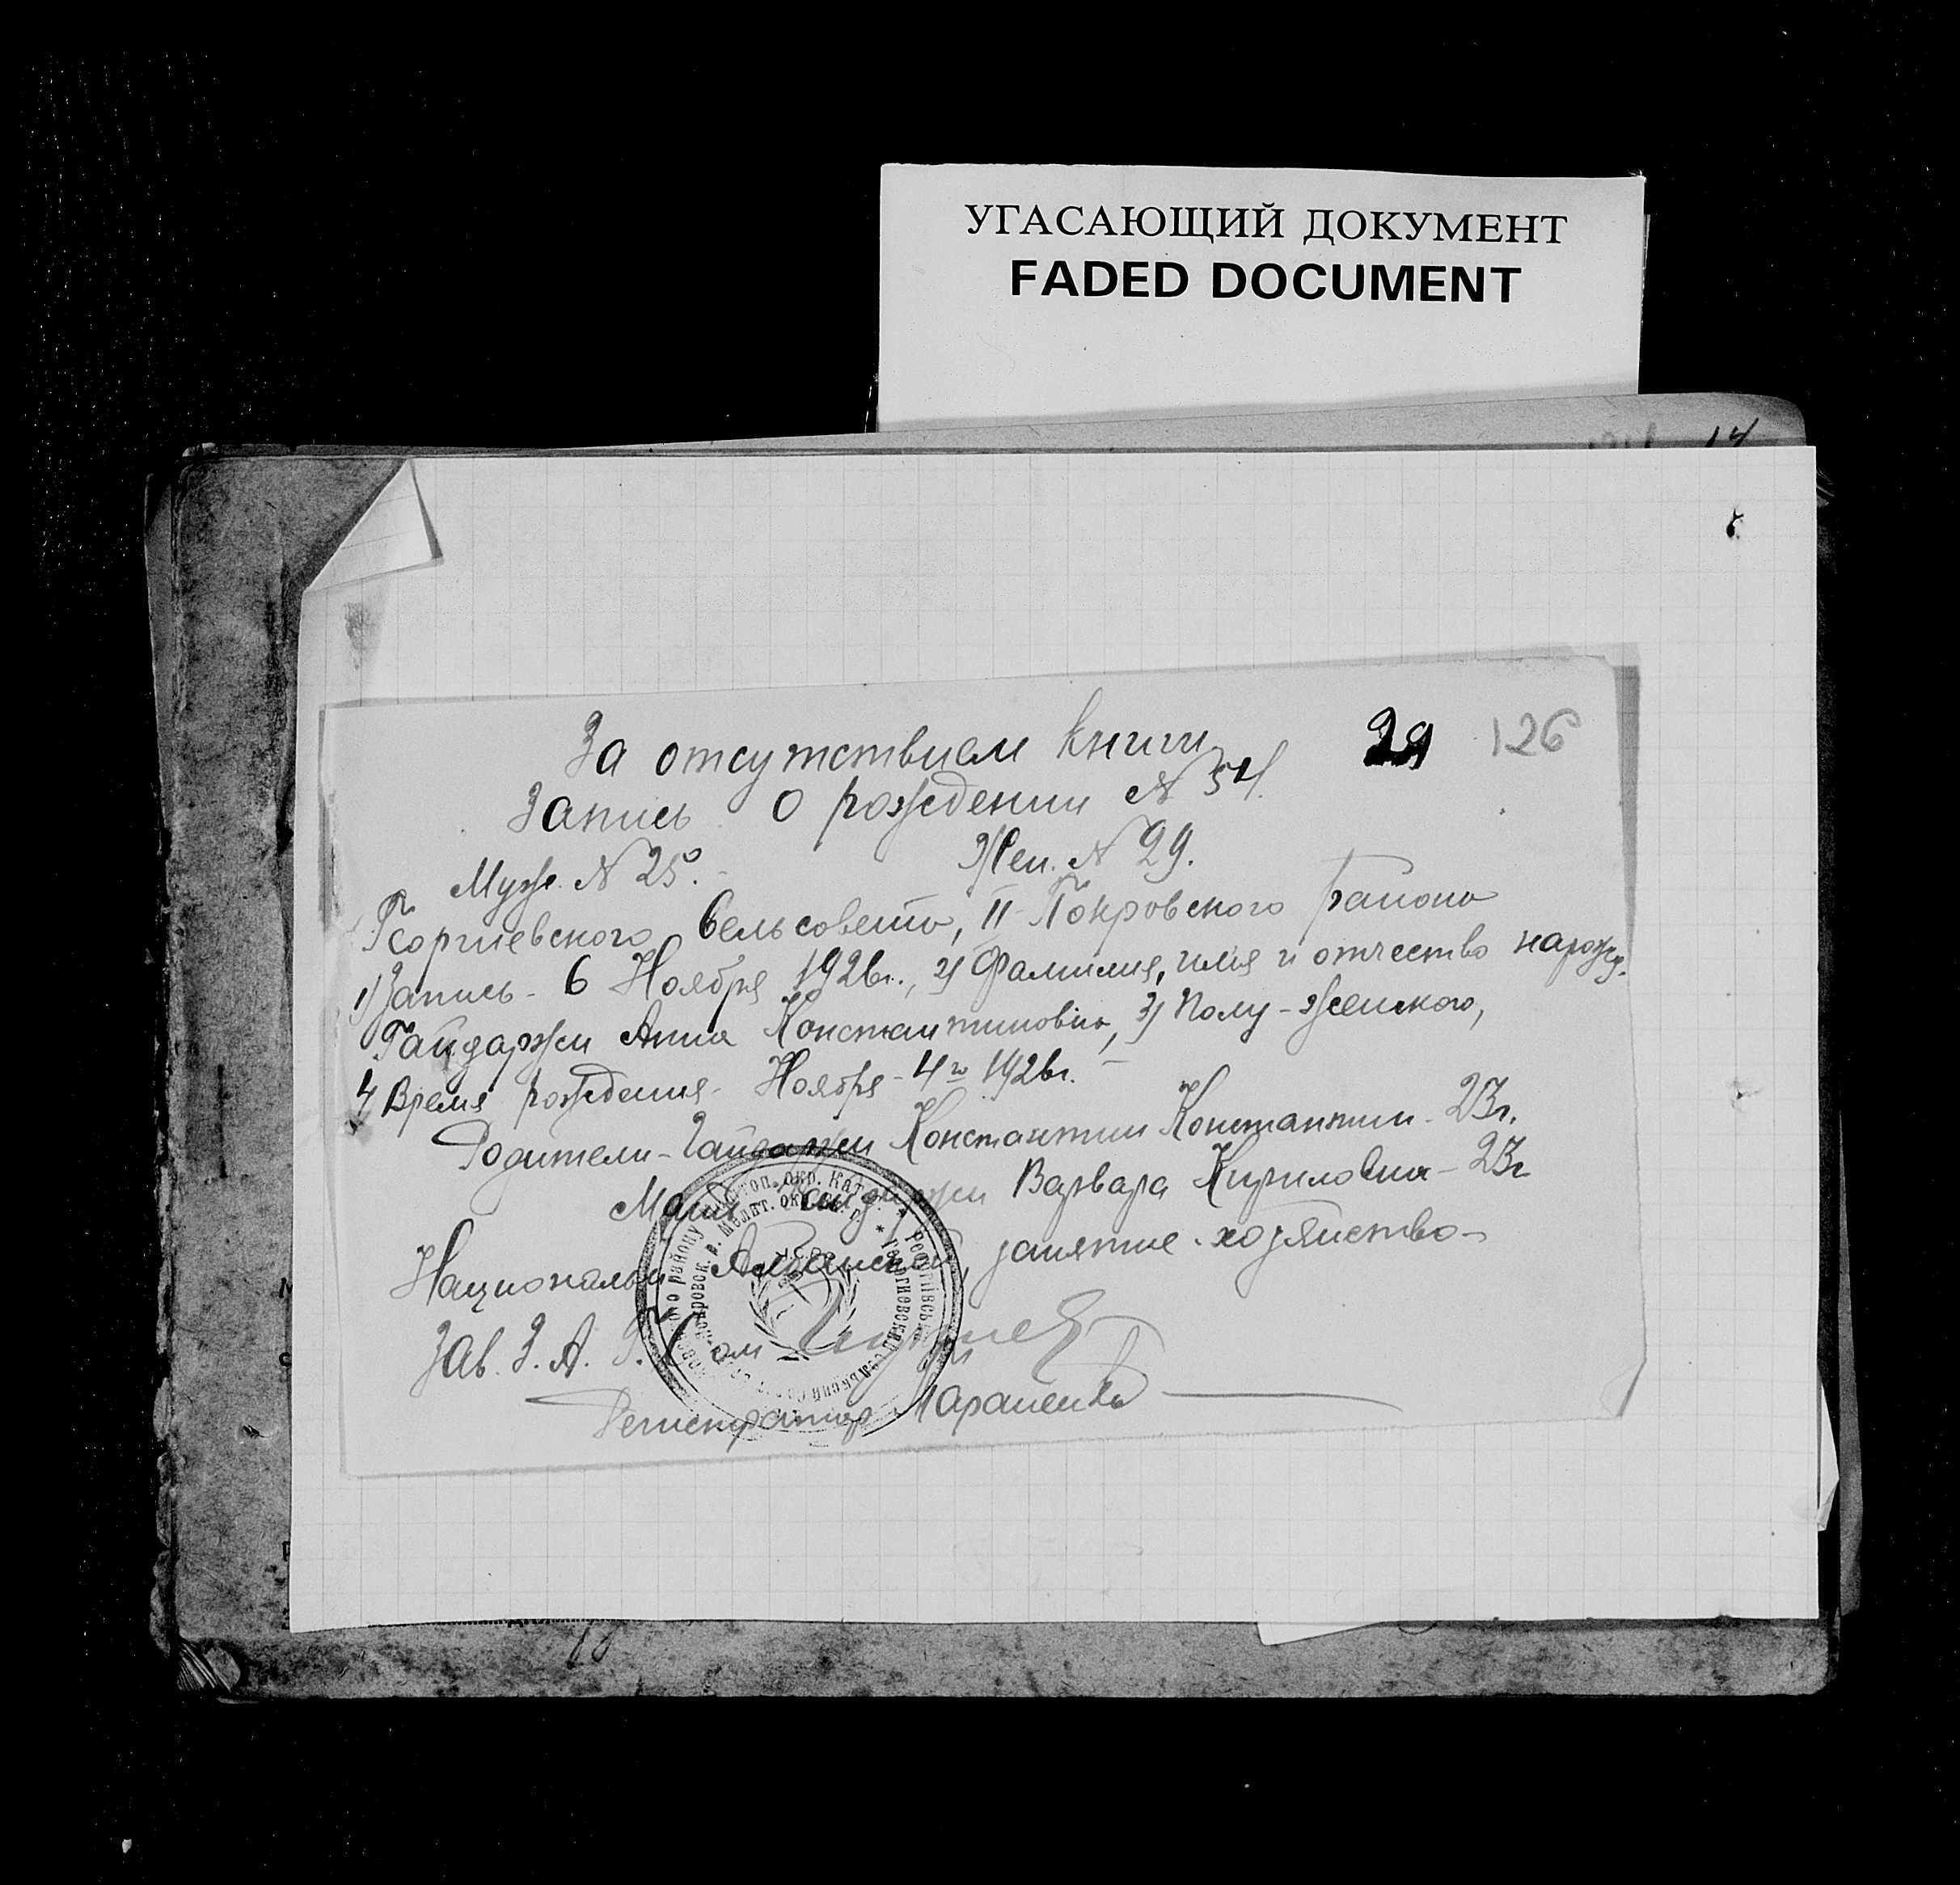 УГАСАЮЩИЙ ДОКУМЕНТ
FADED DOCUMENT
14
29 126
За отсутствием книги
Запись о рождении № 54.
Муж. № 25. Жен. № 29.
Георгиевского Сельсовета, II-Покровского района
1) Запись - 6 Ноября 1926г., 2) Фамилия, имя и отчество нарожд.
Гайдаржи Анна Константиновна, 3) Полу - женского,
4) Время рождения - Ноября - 4го 1926г. -
Родители - Гайдаржи Константин Константин - 23г.
Мать Гайдаржи Варвара Кириловна - 23г
Национальн Албанской, занятие - хозяйство -
Зав. З. А. Г. С ом
Регистратор